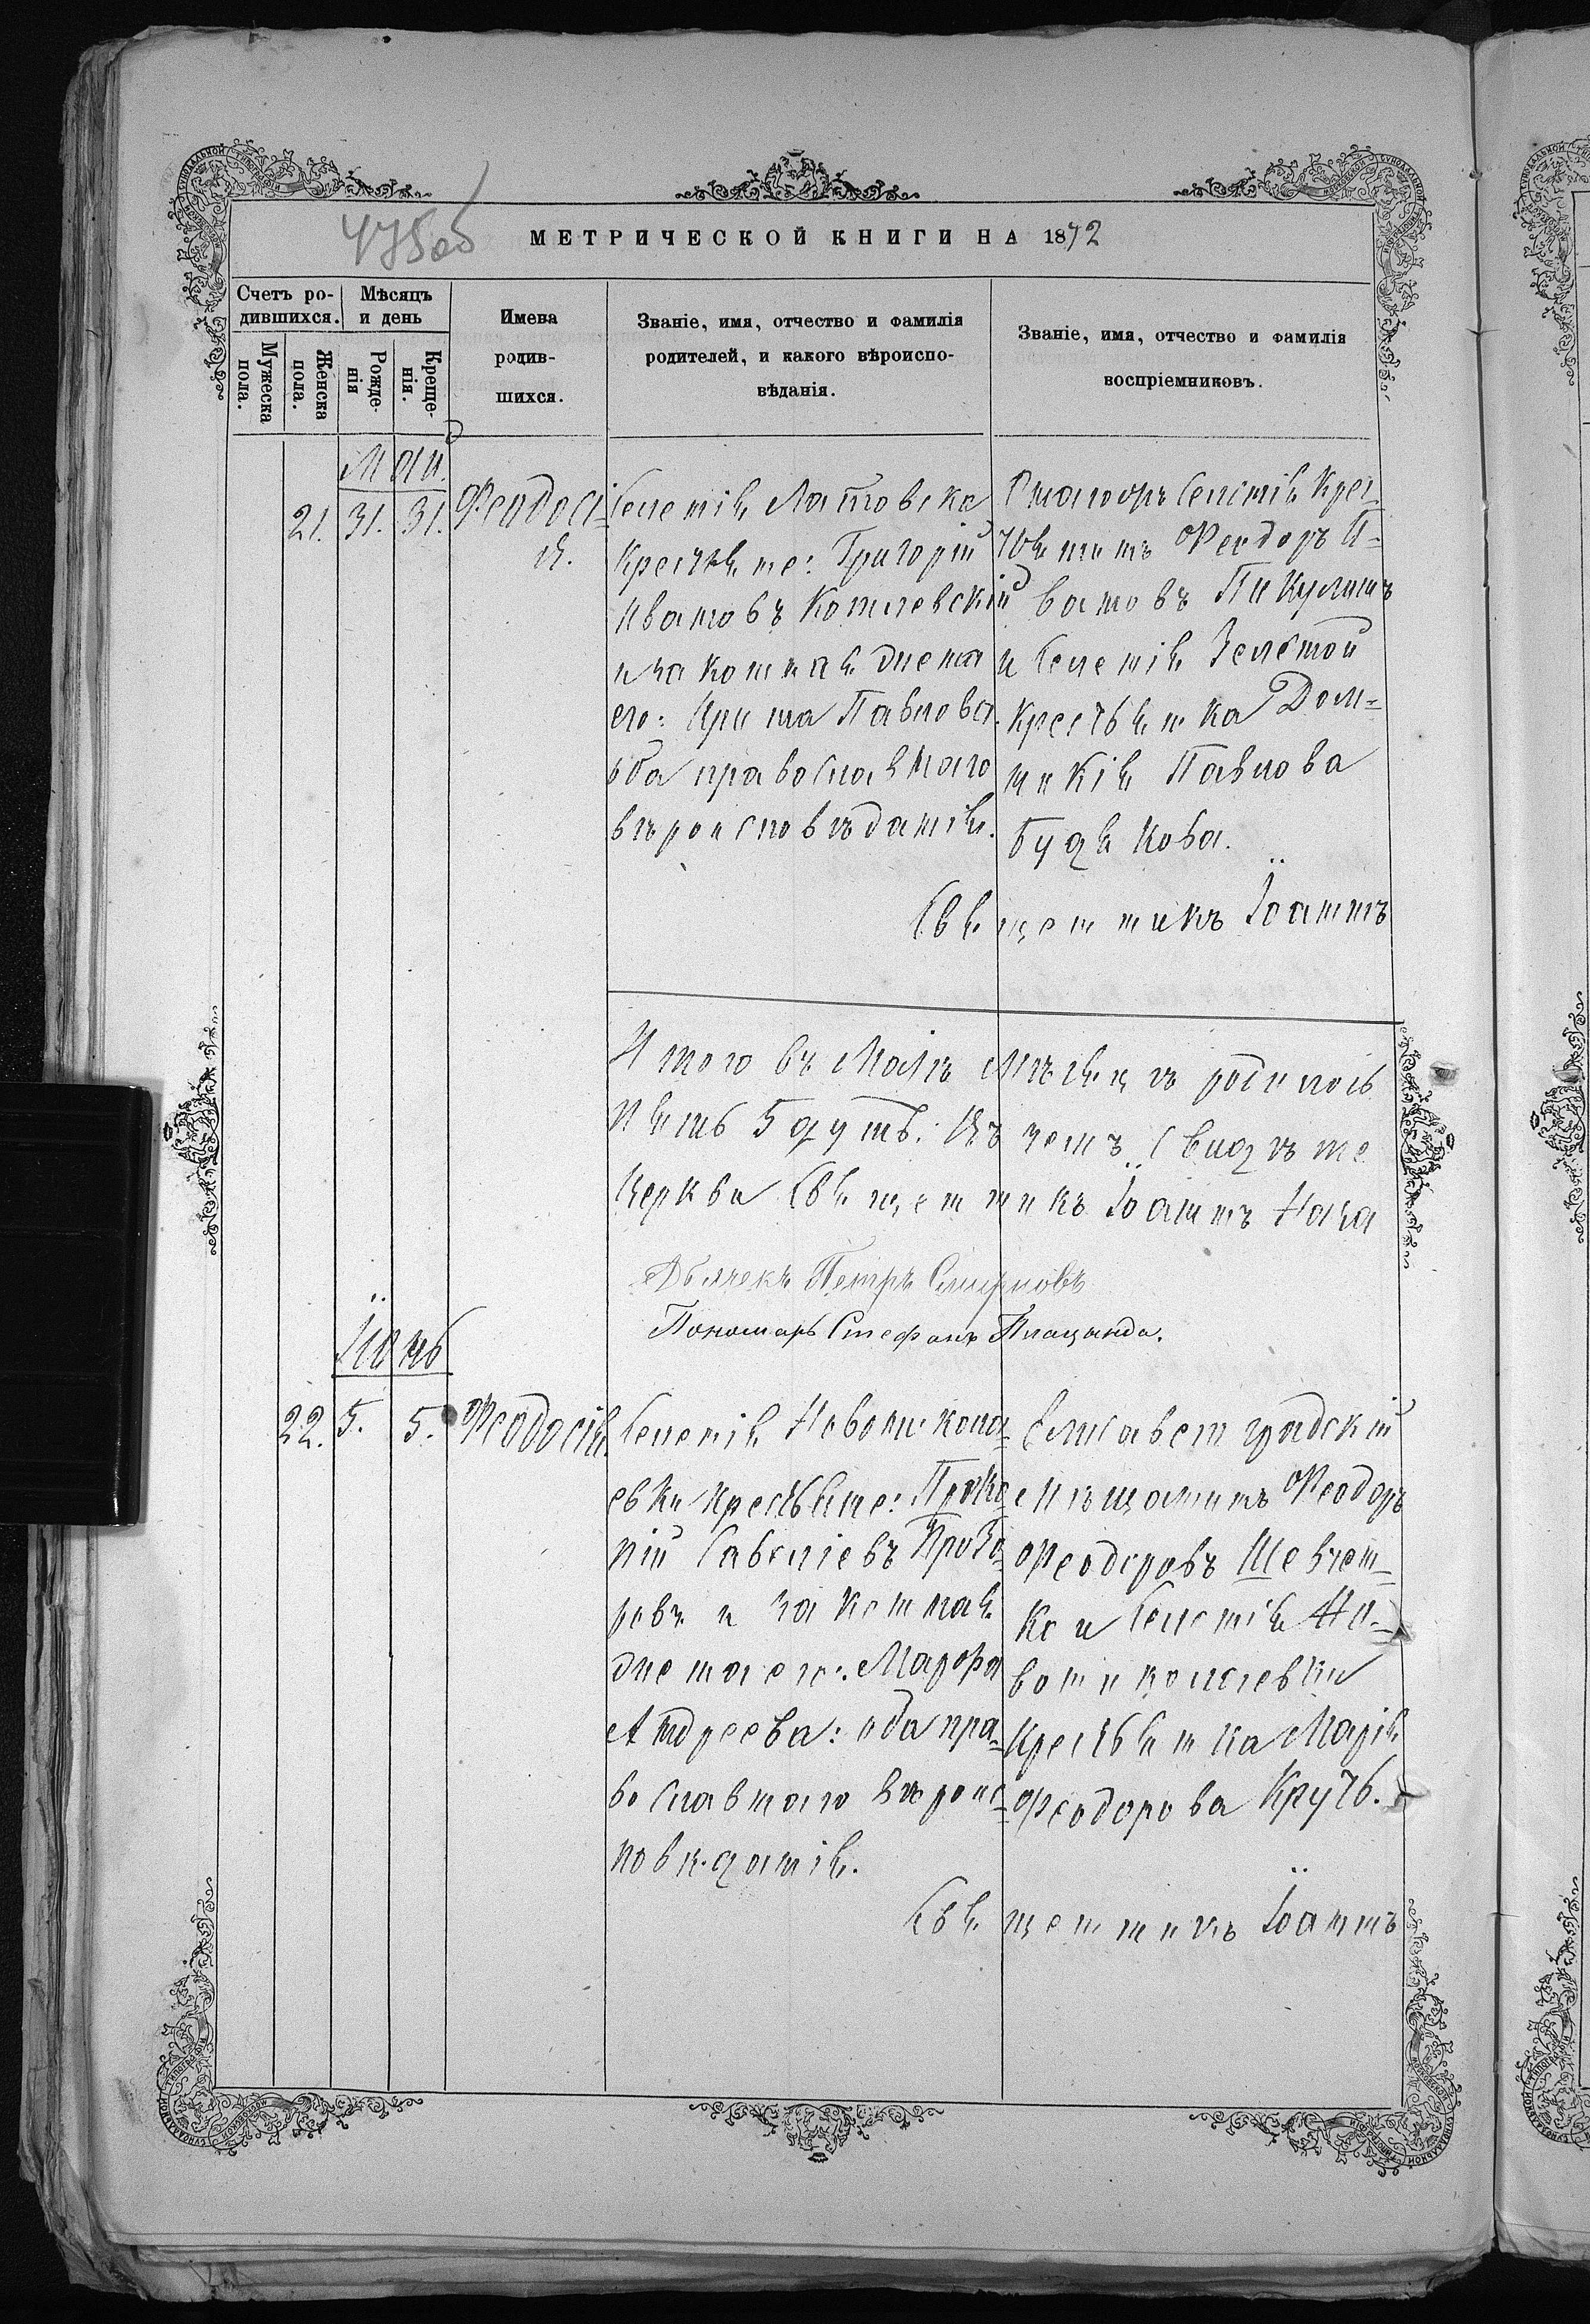 475об
МЕТРИЧЕСКОЙ КНИГИ НА 1872
Счетъ ро-
дившихся.
Мѣсяцъ
и день
Мужеска
пола.
Женска
пола.
Рожде-
нія
Креще-
нія.
Имена
родив-
шихся.
Званіе, имя, отчество и фамилія
родителей, и какого вѣроиспо-
вѣданія.
Званіе, имя, отчество и фамилія
воспріемниковъ.
Май.
21. 31. 31. Феодосі-
я.
Селенія
Крестьяне: Григорій
Ивановъ Котлевскій
и законная жена
его: Ирина Павлова.
оба православнаго
вѣроисповѣданія.
Селенія Крес-
тьянинъ Феодоръ И-
вановъ Пикулинъ
и Селенія Зеленой
крестьянка Дом-
никія Павлова
Будякова.
Священникъ Іоаннъ
Итого въ Маѣ мѣсяцѣ родилось
пять 5 душъ. Въ чемъ свидѣте
Церкви Священникъ Іоаннъ
Дьячекъ Петръ Смирновъ
Пономарь Стефанъ Плацында.
Іюнь
22. 5. 5. Феодосія.
Селенія Новоникола-
евки крестьяне: Проко-
пій Савеліевъ Прохо-
ровъ и законная
жена его: Марфа
Андреева: оба пра-
вославнаго вѣроис-
повѣданія.
Елисаветградскій
Мѣщанинъ Феодоръ
Феодоровъ Шевчен-
ко и Селенія Но-
вониколаевки
крестьянка Марія
Феодорова Круть.
Священникъ Іоаннъ